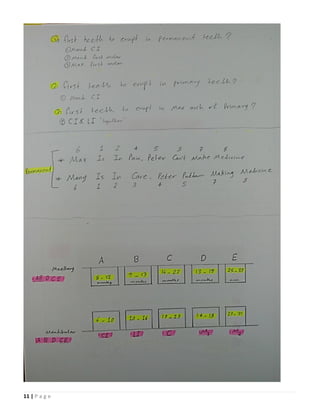 Q: first teeth to erupt in permanent teeth?
① Mand CI
② Mand first molar
③ Max first molar
Q: first teeth to erupt in primary teeth?
① Mand CI
Q: first teeth to erupt in Max arch of Primary?
① CI & LI "together"
6 1 2 4 5 3 7 8
* Max Is In Pain, Peter Can't Make Medicine
Permanent
* Many Is In Care, Peter Making Medicine
6 1 2 3 4 5 7 8
A B C D E
Maxillary
8-12 9-13 16-22 13-19
months months months months
A B D C E
6-10 10-16 17-23 14-18
Mandibular
A B D C E
11 | Page